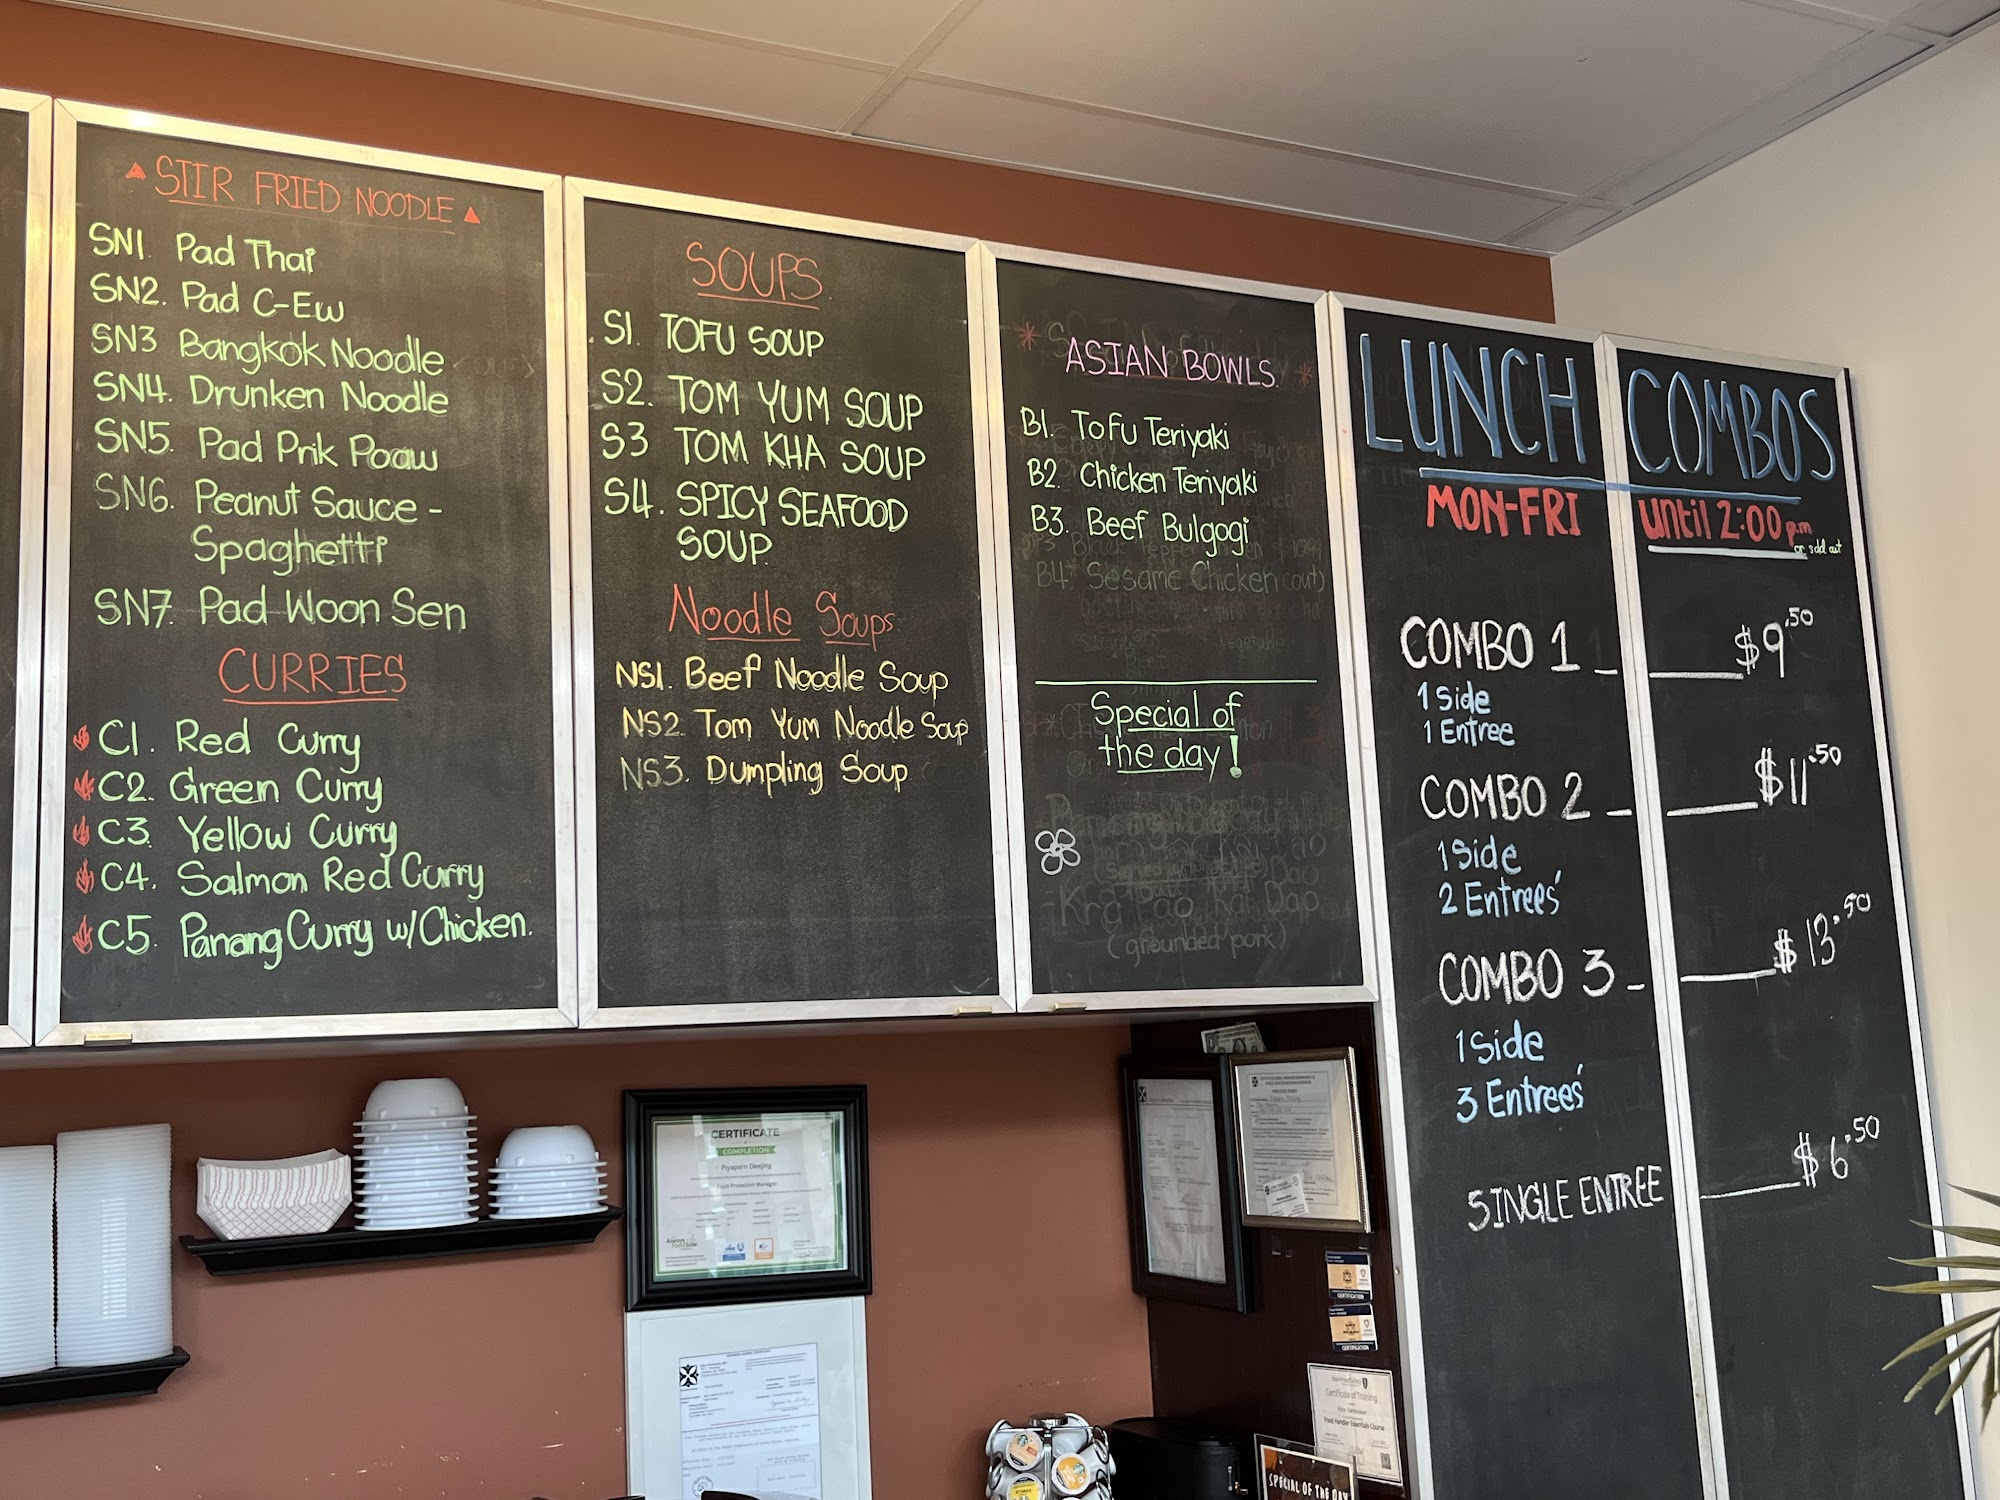 STIR FRIED NOODLE
SN1. Pad Thai
SN2. Pad C-Ew
SN3 Bangkok Noodle
SN4. Drunken Noodle
SN5. Pad Prik Poaw
SN6. Peanut Sauce -
Spaghetti
SN7. Pad Woon Sen
CURRIES
C1. Red Curry
C2. Green Curry
C3. Yellow Curry
C4. Salmon Red Curry
C5. Panang Curry w/Chicken.
SOUPS
S1. TOFU SOUP
S2. TOM YUM SOUP
S3 TOM KHA SOUP
S4. SPICY SEAFOOD
SOUP.
Noodle Soups
NS1. Beef Noodle Soup
NS2. Tom Yum Noodle Soup
NS3. Dumpling Soup
ASIAN BOWLS
B1. Tofu Teriyaki
B2. Chicken Teriyaki
B3. Beef Bulgogi
B4. Sesame Chicken (out)
Special of
the day!
(grounded pork)
LUNCH COMBOS
MON-FRI until 2:00 p.m
or sold out
COMBO 1 $9.50
1 Side
1 Entree
COMBO 2 $11.50
1 Side
2 Entrees'
COMBO 3 $13.50
1 Side
3 Entrees'
SINGLE ENTREE $6.50
CERTIFICATE
COMPLETION
Piyaporn Deejing
Food Protection Manager
CERTIFICATION
CERTIFICATION
Certificate of Training
Food Handler Essentials Course
SPECIAL OF THE DAY